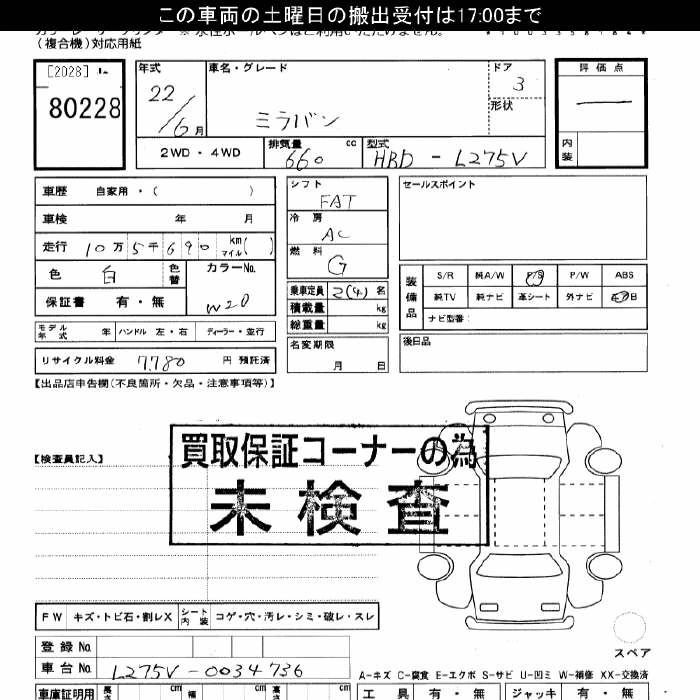 この車両の土曜日の搬出受付は17:00まで
(複合機)対応用紙
[2028]
80228
年式 22/6月
車名・グレード ミラバン
ドア 3
形状
評価点 —
内装
2WD・4WD
排気量 660 cc
型式 HBD - L275V
車歴 自家用・( )
車検 年 月
走行 10万5千690 km マイル( )
色 白 色替
カラーNo. W20
保証書 有・無
モデル年式 年 ハンドル 左・右 ディーラー・並行
リサイクル料金 7780 円 預託済
シフト FAT
冷房 AC
燃料 G
乗車定員 2(4) 名
積載量 kg
総重量 kg
名変期限 月 日
セールスポイント
装備品
S/R 純A/W P/S P/W ABS
純TV 純ナビ 革シート 外ナビ
ナビ型番:
後日品
【出品店申告欄(不良箇所・欠品・注意事項等)】
買取保証コーナーの為
未検査
【検査員記入】
FW キズ・トビ石・割レX シート内装 コゲ・穴・汚レ・シミ・破レ・スレ
登録No.
車台No. L275V-0034736
スペア
A-キズ C-腐食 E-エクボ S-サビ U-凹ミ W-補修 XX-交換済
車庫証明用 長さ cm 幅 cm 高さ cm
工具 有・無 ジャッキ 有・無